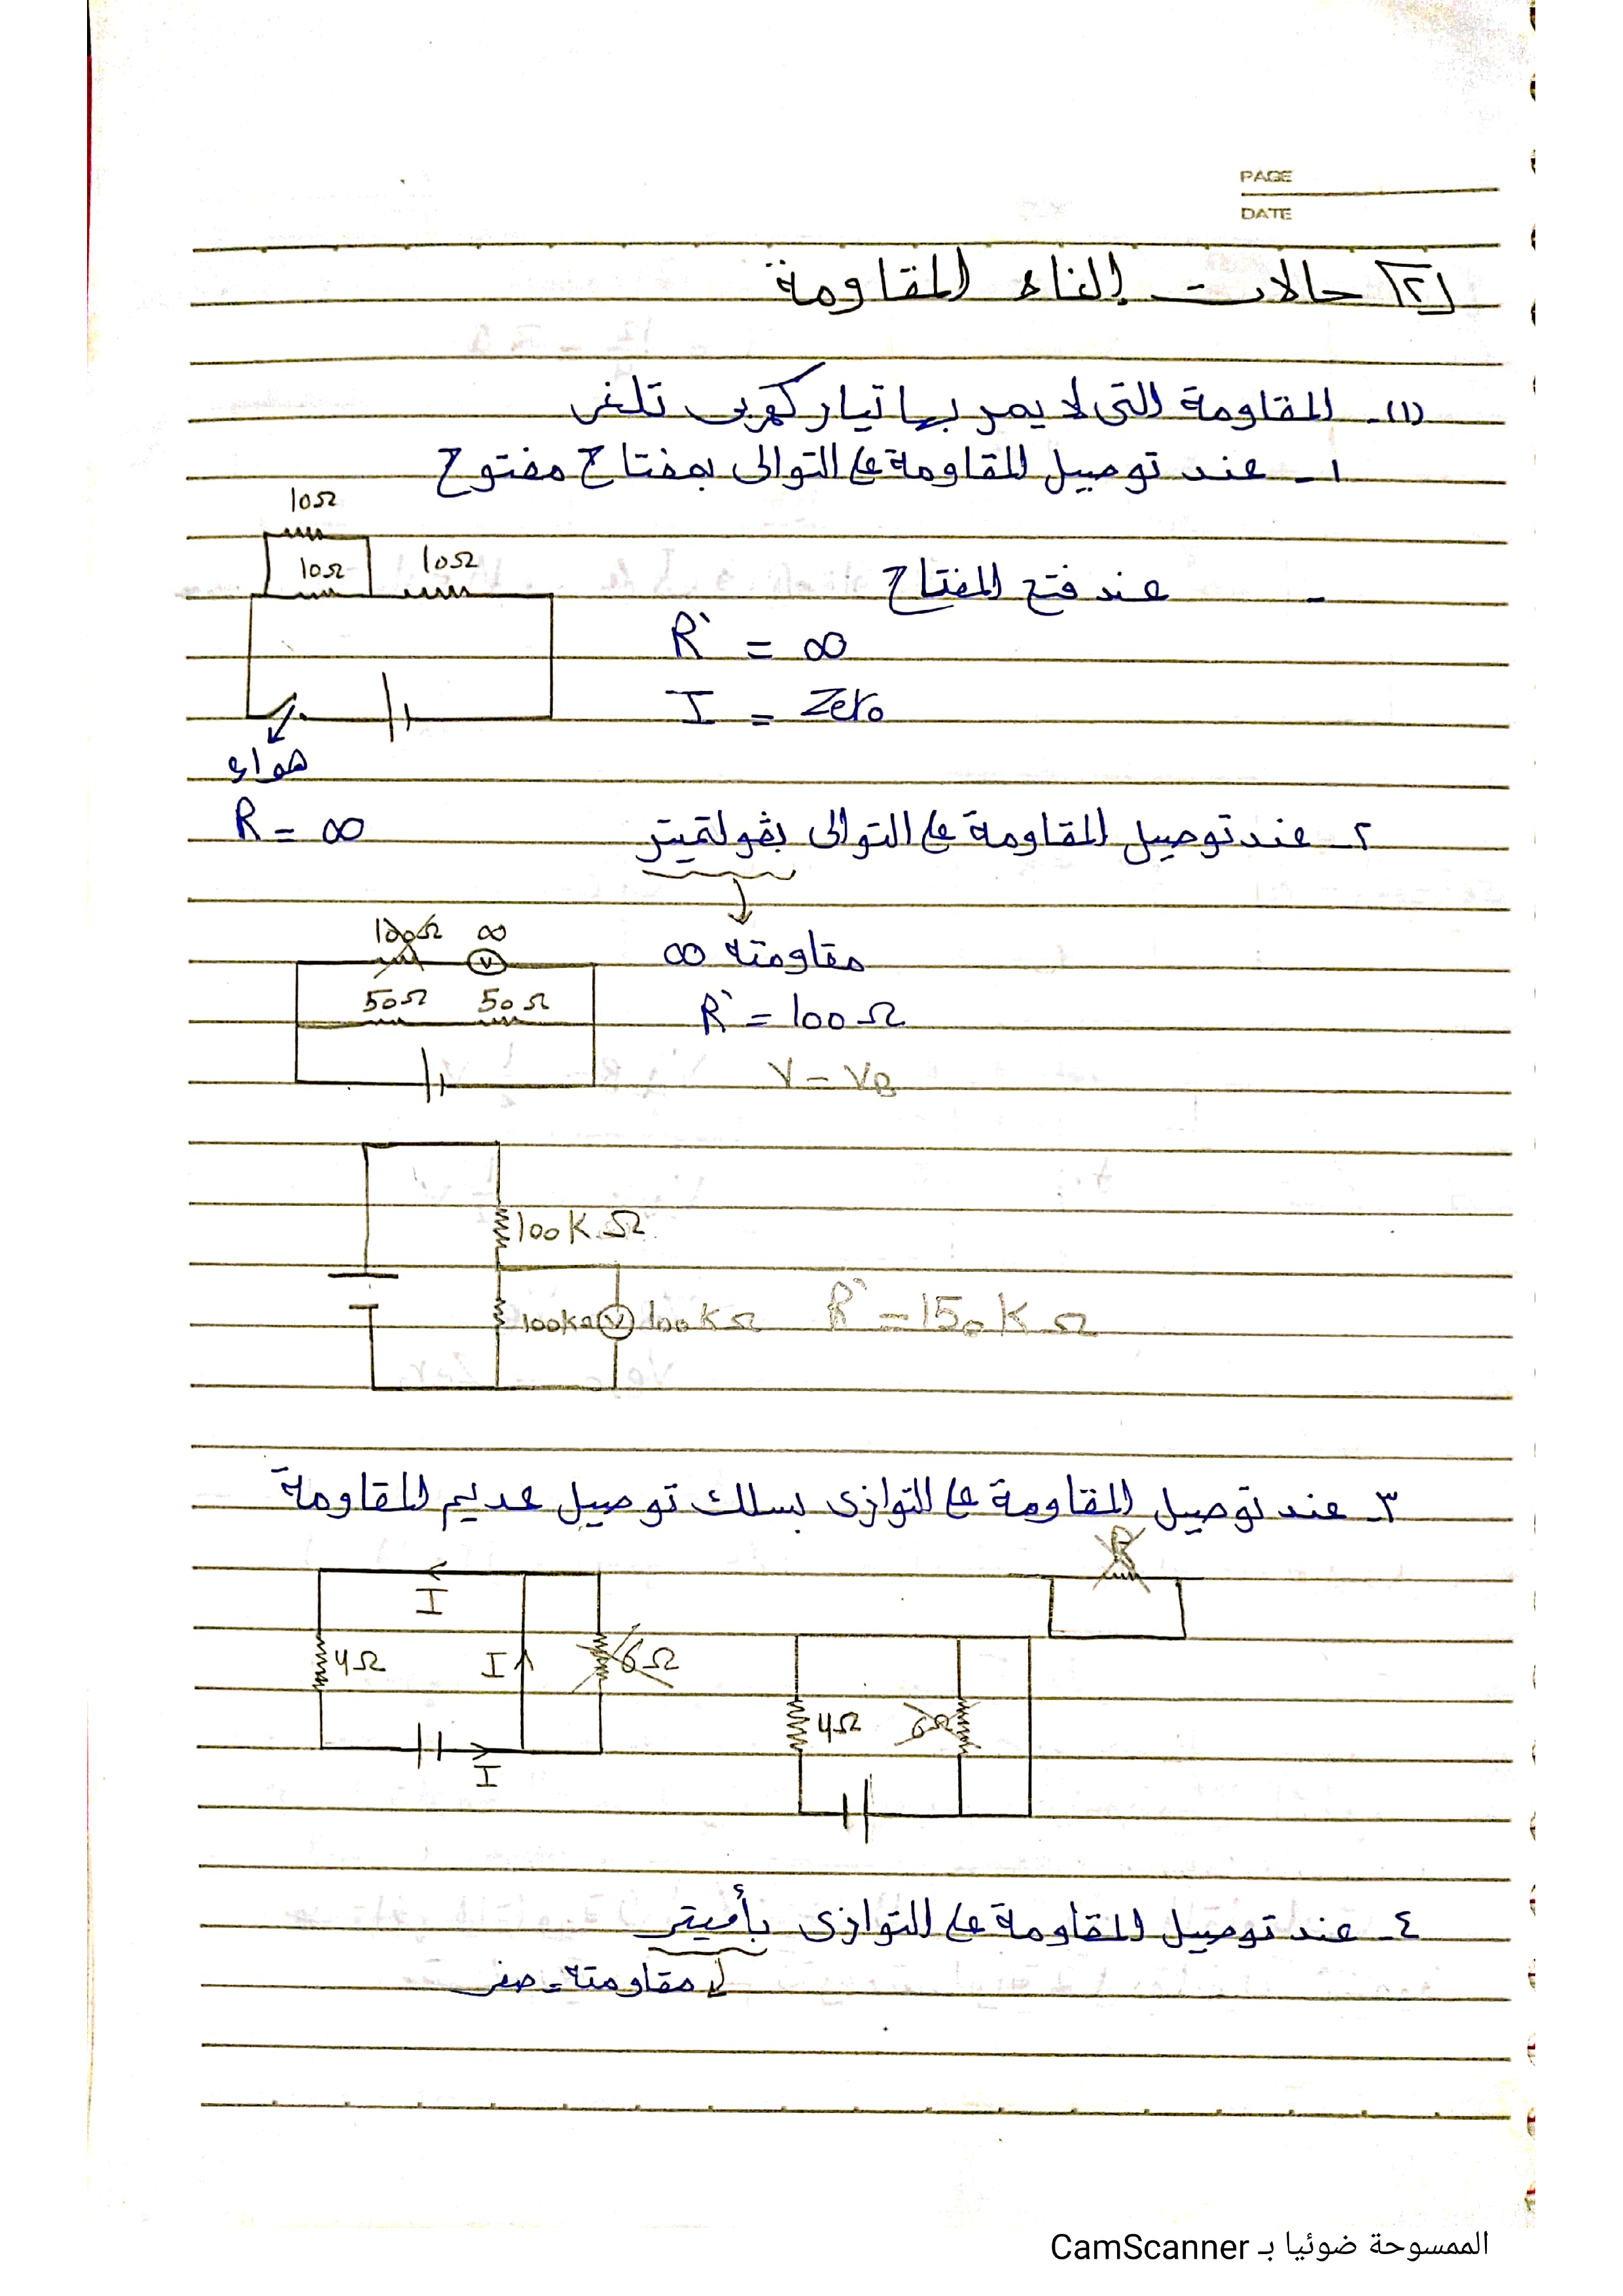 PAGE
DATE
٢ حالات إلغاء المقاومة
(١)- المقاومة التى لا يمر بها تيار كهربى تلغى
١- عند توصيل المقاومة على التوالى بمفتاح مفتوح
10Ω
10Ω 10Ω
- عند فتح المفتاح
R` = ∞
I = Zero
هواء
R = ∞
٢- عند توصيل المقاومة على التوالى بڤولتميتر
100Ω ∞
V
مقاومته ∞
50Ω 50Ω
R` = 100Ω
V = VB
100KΩ
100KΩ V 100KΩ R` = 150KΩ
٣- عند توصيل المقاومة على التوازى بسلك توصيل عديم المقاومة
R
I
4Ω I 6Ω
I
4Ω 6Ω
٤- عند توصيل المقاومة على التوازى بأميتر
مقاومته = صفر
الممسوحة ضوئيا بـ CamScanner